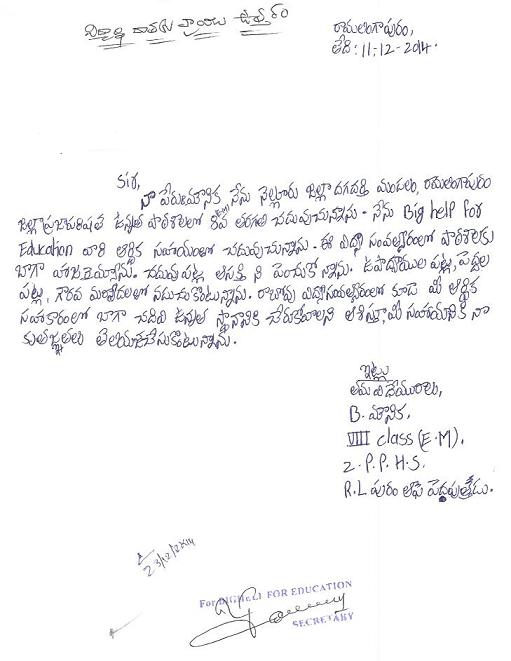 విద్యార్థి దాతకు వ్రాయు ఉత్తరం
రామలింగాపురం,
తేది: 11-12-2014.
Sir,
నా పేరు మౌనిక నేను నెల్లూరు జిల్లా దగదర్తి మండలం, రామలింగాపురం
జిల్లా ప్రజా పరిషత్ ఉన్నత పాఠశాలలో 8వ తరగతి చదువుచున్నాను. నేను Big help For
Education వారి ఆర్థిక సహాయంలో చదువుచున్నాను. ఈ విద్యా సంవత్సరంలో పాఠశాలకు
బాగా హాజరయ్యాను. చదువు పట్ల ఆసక్తి ని పెంచుకో న్నాను. ఉపాధ్యాయుల పట్ల, పెద్దల
పట్ల, గౌరవ మర్యాదలలో నడుచుకొంటున్నాను. రాబోవు విద్యాసంవత్సరంలో కూడ మీ ఆర్థిక
సహకారంలో బాగా చదివి ఉన్నత స్థానానికి చేరుకోవాలని ఆశిస్తూ, మీ సహాయానికి నా
కృతజ్ఞతలు తెలియచేసుకొంటున్నాను.
ఇట్లు
తమ విధేయురాలు,
B. మౌనిక,
VIII class (E.M).
Z.P.P.H.S.
R.L పురం ఆఫ్ పెద్దపుత్తేడు.
23/12/2014
For BIGHELP FOR EDUCATION
SECRETARY